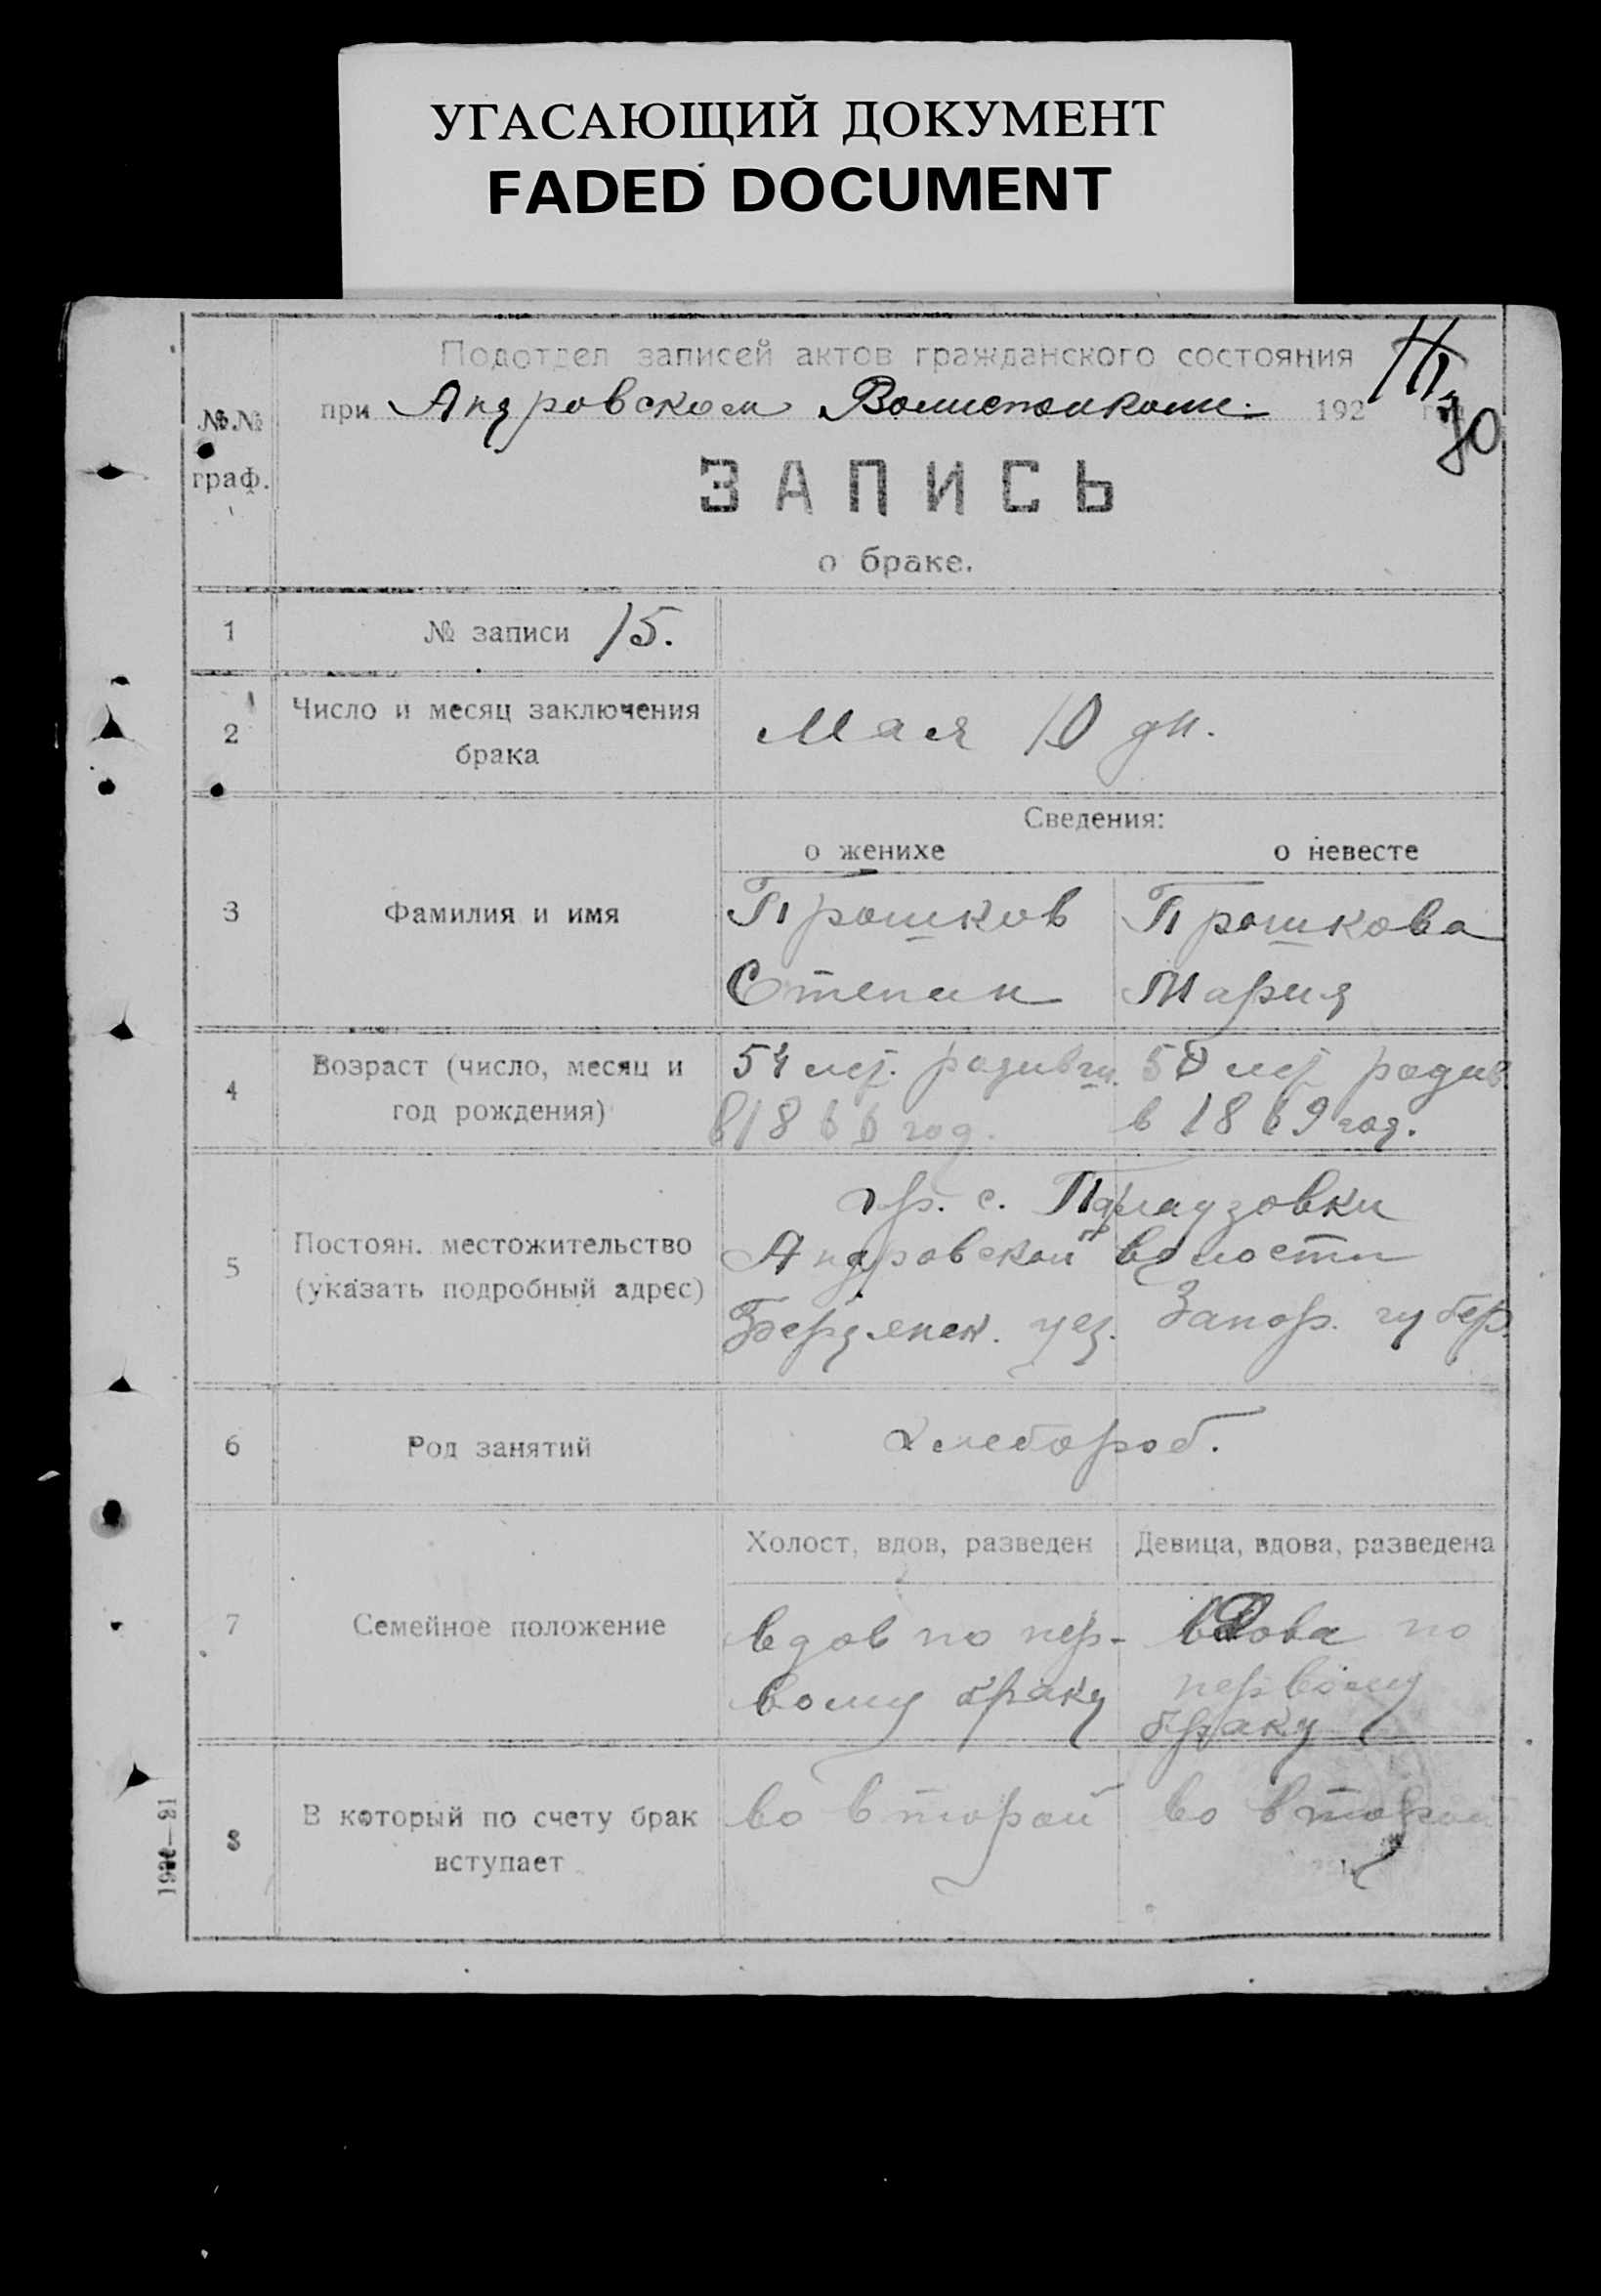 УГАСАЮЩИЙ ДОКУМЕНТ
FADED DOCUMENT
Подотдел записей актов гражданского состояния
при Андровском 192
70
№№ граф.
ЗАПИСЬ
о браке.
1 № записи 15.
2 Число и месяц заключения брака
Мая 10 дн.
Сведения:
о женихе о невесте
3 Фамилия и имя
Трошков Трошкова
Степан Мария
4 Возраст (число, месяц и год рождения)
54 лет. родивш. 50 лет родив
в 1866 год. в 1869 год.
5 Постоян. местожительство (указать подробный адрес)
гр. с.
Андровской волости
Бердянск. уез. Запор. губер.
6 Род занятий
хлебороб.
Холост, вдов, разведен Девица, вдова, разведена
7 Семейное положение
вдов по пер- вдова по
вому браку первому
браку
8 В который по счету брак вступает
во второй во второй